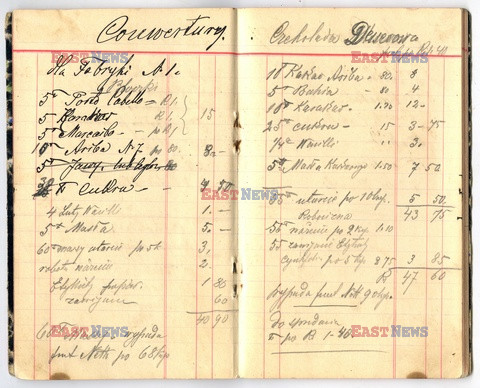 Couwertury.
dla Fabryki N 1.
5 ℔ Porto Cabello = R 1.
5 ℔ Karakas R 1. 15
5 ℔ Maracaibo - po R 1
10 ℔ Ariba N 7 po 80. 8 -
30 ℔ cukru - 4 50
4 Łuty Wanilli 1. -
5 ℔ Masła 5. -
60 ℔ masy utarcie po 5 k 3.
robota 2.
1 80
zawijanie 60
40 90
wypada
funt Netto po 68 kop
Czekolada Deserowa
10 ℔ Kakao Ariba - 80. 8
5 ℔ Bahia - 80 4
10 ℔ Karakas 1.20 12 -
25 ℔ cukru - 15 3 - 75
Wanilli 3.
5 ℔ Masła 1.50 7 50
utarcie po 10 kop. 5 50.
Robocizna 43 75
po 2 kop. 1.10
55 zawijanie Etykiety
po 5 kop 2 75 3 85
R 47 60
wypada funt Nett 90 kop.
do sprzedania
po R 1-40
EAST NEWS
EAST NEWS
EAST NEWS
EAST NEWS
EAST NEWS